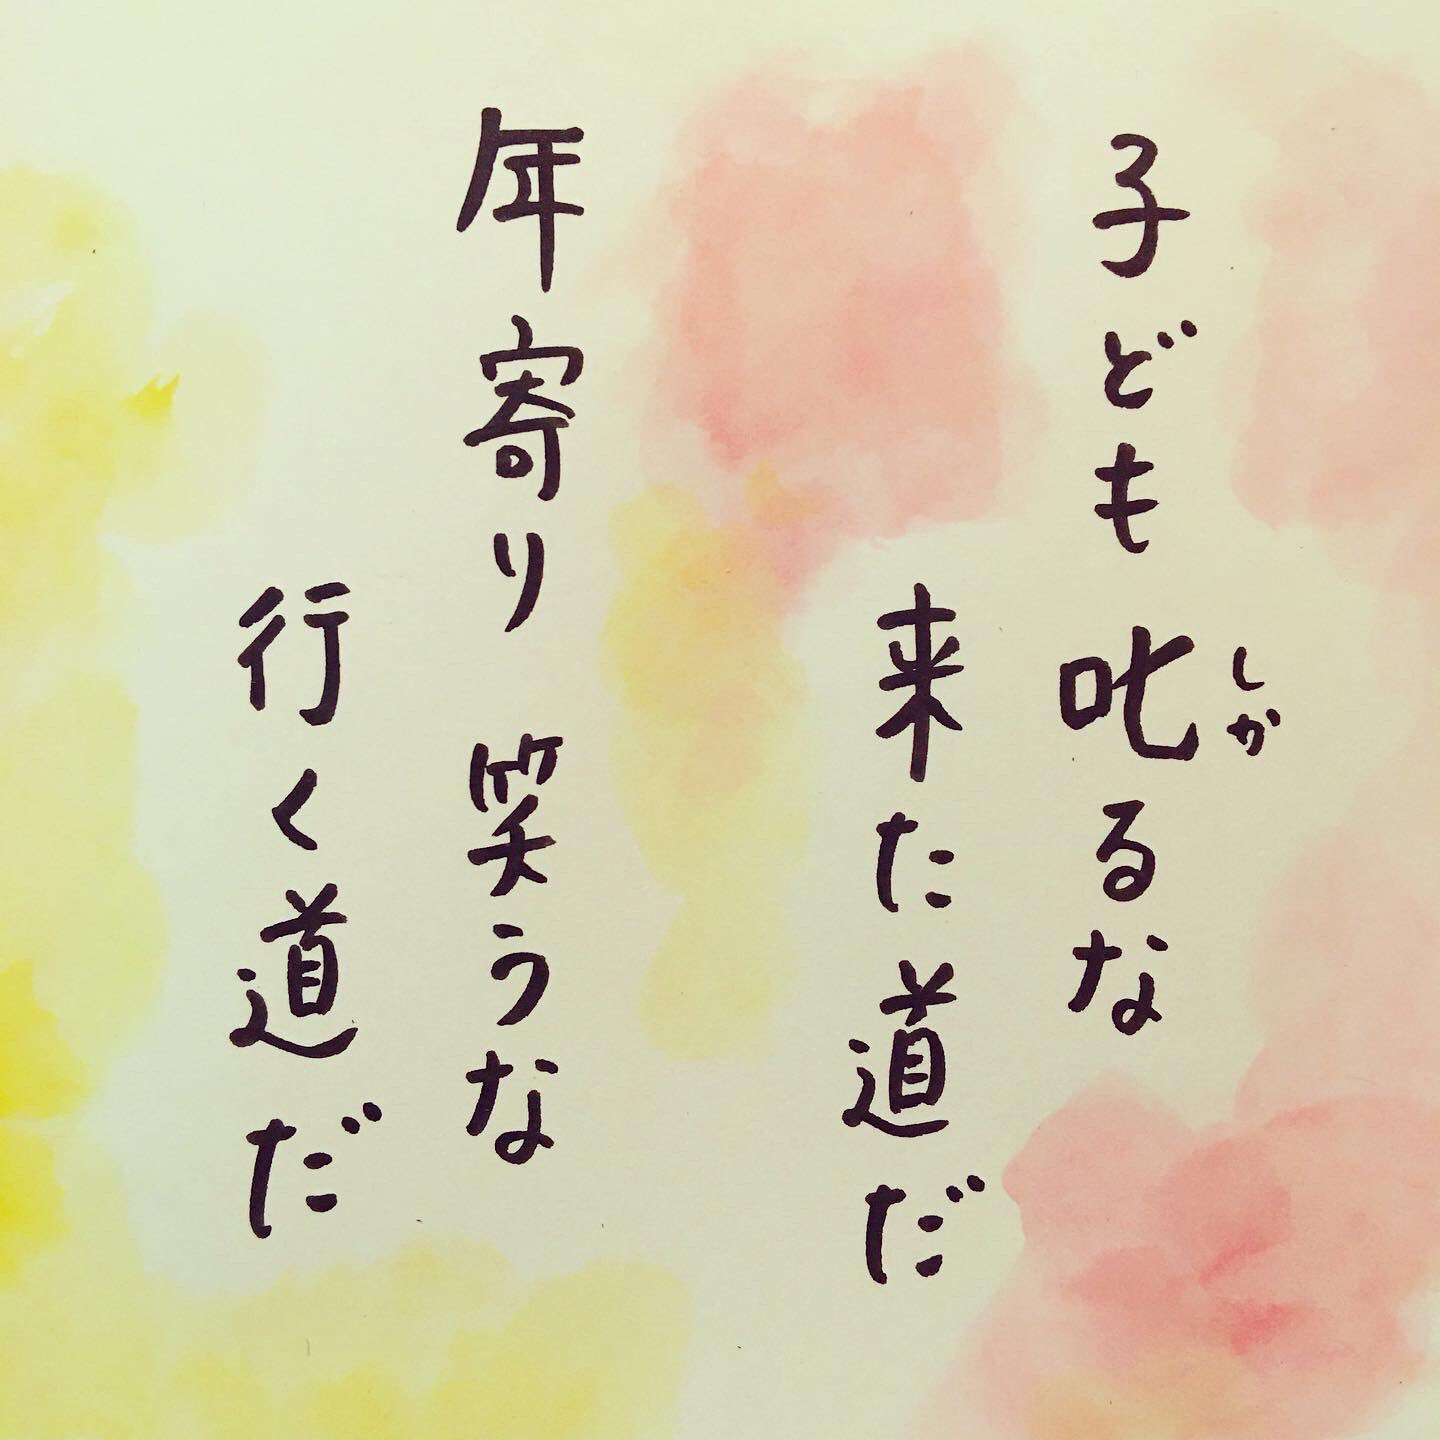 子ども叱るな
しか
来た道だ
年寄り笑うな
行く道だ